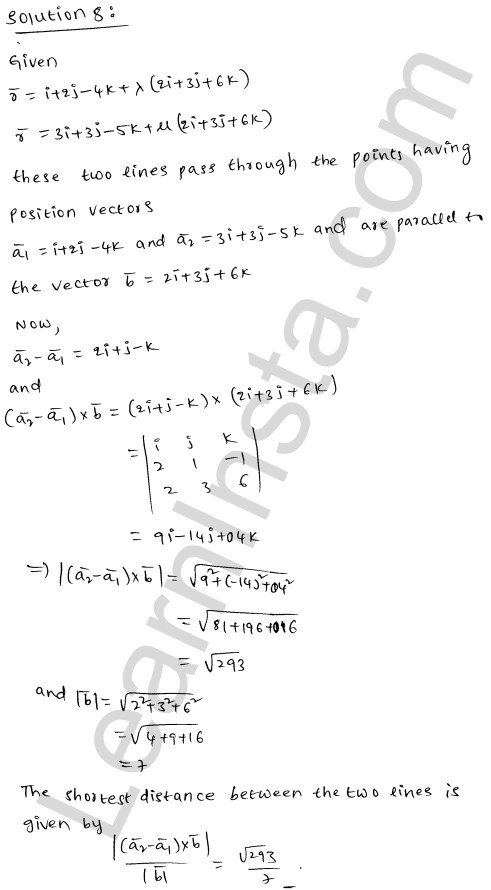 Solution 8:
Given
r̄ = i+2j-4k+λ(2i+3j+6k)
r̄ = 3i+3j-5k+μ(2i+3j+6k)
these two lines pass through the points having
position vectors
ā₁ = i+2j-4k and ā₂ = 3i+3j-5k and are parallel to
the vector b̄ = 2i+3j+6k
Now,
ā₂-ā₁ = 2i+j-k
and
(ā₂-ā₁)×b̄ = (2i+j-k)×(2i+3j+6k)
= | i j k
2 1 -1
2 3 6 |
= 9i-14j+04k
⇒ |(ā₂-ā₁)×b̄| = √9²+(-14)²+04²
= √81+196+016
= √293
and |b̄| = √2²+3²+6²
= √4+9+16
= 7
The shortest distance between the two lines is
given by
|(ā₂-ā₁)×b̄| / |b̄| = √293 / 7.
LearnInsta.com